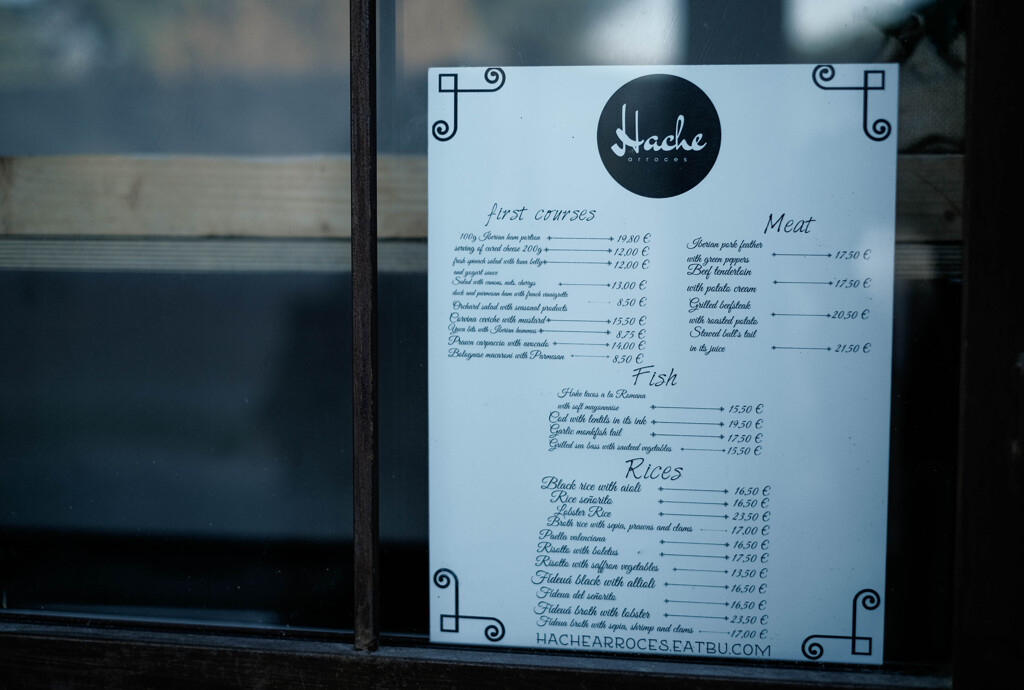 Hache
arroces
first courses
100g Iberian ham portion 19,80 €
serving of cured cheese 200g 12,00 €
fresh spinach salad with tuna belly 12,00 €
and yogurt sauce
Salad with canons, nuts, cherrys 13,00 €
duck and parmesan ham with french vinaigrette
Orchard salad with seasonal products 8,50 €
Corvina ceviche with mustard 15,50 €
bits with Iberian hummus 8,75 €
Prawn carpaccio with avocado 14,00 €
Bolognase macaroni with Parmesan 8,50 €
Meat
Iberian pork feather
with green peppers 17,50 €
Beef tenderloin
with potato cream 17,50 €
Grilled beefsteak
with roasted potato 20,50 €
Stewed bull's tail
in its juice 21,50 €
Fish
Hake tacos a la Romana
with soft mayonnaise 15,50 €
Cod with lentils in its ink 19,50 €
Garlic monkfish tail 17,50 €
Grilled sea bass with sauteed vegetables 15,50 €
Rices
Black rice with aioli 16,50 €
Rice señorito 16,50 €
Lobster Rice 23,50 €
Broth rice with sepia, prawns and clams 17,00 €
Paella valenciana 16,50 €
Risotto with boletus 17,50 €
Risotto with saffron vegetables 13,50 €
Fideuá black with allioli 16,50 €
Fideua del señorito 16,50 €
Fideuá broth with lobster 23,50 €
Fideua broth with sepia, shrimp and clams 17,00 €
HACHEARROCES.EATBU.COM